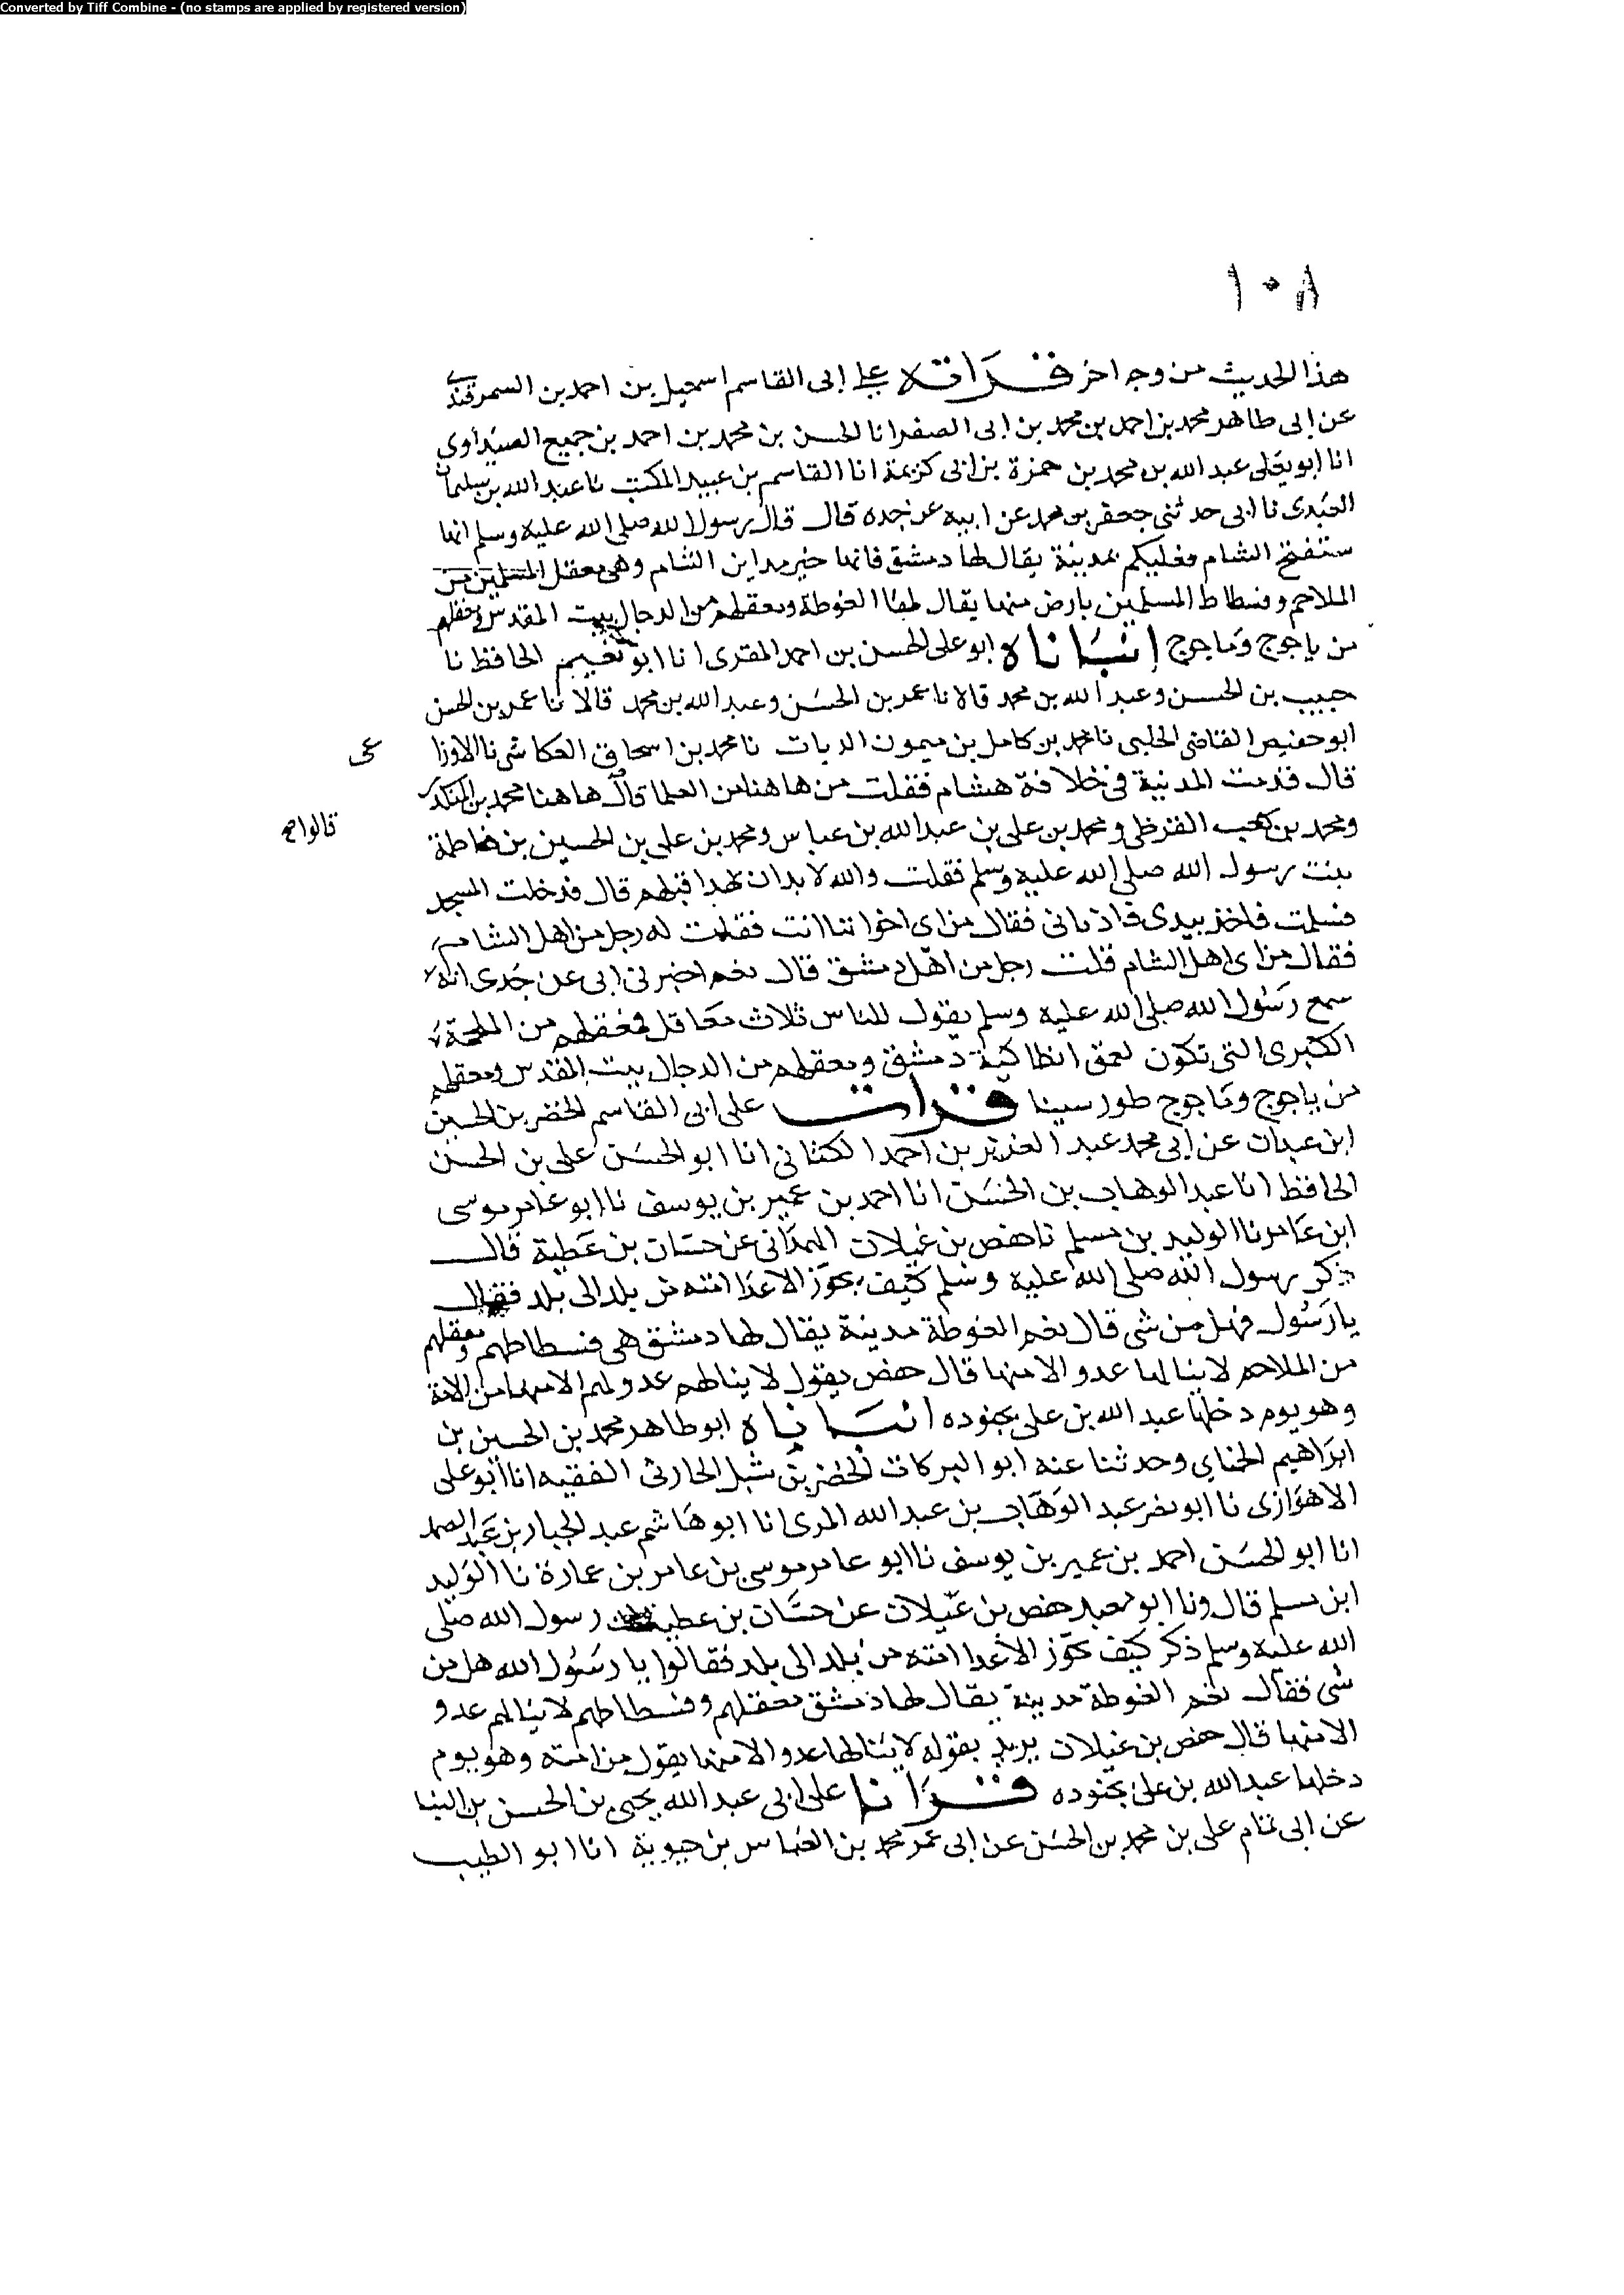 Converted by Tiff Combine - (no stamps are applied by registered version)
١٠٨
هذا الحديث من وجه اخر قراته على ابى القاسم اسمعيل بن احمد بن السمرقندي
عن ابى طاهر محمد بن احمد بن محمد بن ابى الصقر انا الحسن بن محمد بن احمد بن جميع الصيداوى
انا ابو يعلى عبد الله بن محمد بن حمزة بن ابى كريمة انا القاسم بن عبيد المكتب نا عبد الله بن سليمان
العبدى نا ابى حدثنى جعفر بن محمد عن ابيه عن جده قال قال رسول الله صلى الله عليه وسلم انها
ستفتح الشام فعليكم بمدينة يقال لها دمشق فانها خير مداين الشام وهى معقل المسلمين من
الملاحم وفسطاط المسلمين بارض منها يقال لها الغوطة ومعقلهم من الدجال بيت المقدس ومعقلهم
من ياجوج وماجوج انبأناه ابو على الحسن بن احمد المقرى انا ابو نعيم الحافظ نا
حبيب بن الحسن وعبد الله بن محمد قالا نا عمر بن الحسن وعبد الله بن محمد قالا نا عمر بن الحسن
ابو حفيص القاضى الحلبى نا محمد بن كامل بن ميمون الزيات نا محمد بن اسحاق العكاشى نا الاوزا
عى
قال قدمت المدينة فى خلافة هشام فقلت من هاهنا من العلما قال هاهنا محمد بن المنكدر
قالوا صح
ومحمد بن كعب القرظى ومحمد بن على بن عبد الله بن عباس ومحمد بن على بن الحسين بن فاطمة
بنت رسول الله صلى الله عليه وسلم فقلت والله لابدان بهذا قبلهم قال فدخلت المسجد
فسلمت فاخذ بيدى فادنانى فقال من اى اخواننا انت فقلت له رجل من اهل الشام
فقال من اى اهل الشام قلت رجل من اهل دمشق قال نعم اخبرنى ابى عن جدى انه
سمع رسول الله صلى الله عليه وسلم يقول للناس ثلاث معاقل فمعقلهم من الملحمة
الكبرى التى تكون بعمق انطاكية دمشق ومعقلهم من الدجال بيت المقدس ومعقلهم
من ياجوج وماجوج طور سينا قرات على ابى القاسم الخضر بن الحسين
ابن عبدان عن ابى محمد عبد العزيز بن احمد الكتانى انا ابو الحسن على بن الحسن
الحافظ انا عبد الوهاب بن الحسن انا احمد بن عمير بن يوسف نا ابو عامر موسى
ابن عامر نا الوليد بن مسلم نا حفص بن غيلان الهمدانى عن حسان بن عطية قال
ذكر رسول الله صلى الله عليه وسلم كيف يجوز الاعدا امته من بلد الى بلد فقال
يا رسول فهل من شى قال نعم الغوطة مدينة يقال لها دمشق هى فسطاطهم ومعقلهم
من الملاحم لا ينالها عدو الا منها قال حفص يقول لا ينالهم عدولهم الا منها من الامة
وهو يوم دخلها عبد الله بن على بجنوده انبأناه ابو طاهر محمد بن الحسين بن
ابراهيم الحناى وحدثنا عنه ابو البركات الخضر بن شبل الحارثى الفقيه انا ابو على
الاهوازى نا ابو نصر عبد الوهاب بن عبد الله المرى انا ابو هاشم عبد الجبار بن عبد الصمد
انا ابو الحسن احمد بن عمير بن يوسف نا ابو عامر موسى بن عامر بن عمارة نا الوليد
ابن مسلم قال ونا ابو معيد حفص بن غيلان عن حسان بن عطية رسول الله صلى
الله عليه وسلم ذكر كيف تجوز الاعدا امته من بلد الى بلد فقالوا يا رسول الله هل من
شى فقال نعم الغوطة مدينة يقال لها دمشق معقلهم وفسطاطهم لا ينالهم عدو
الا منها قال حفص بن غيلان يريد بقوله لا ينالها عدو الا منها يقول من امته وهو يوم
دخلها عبد الله بن على بجنوده قرانا على ابى عبد الله يحيى بن الحسن بن البنا
عن ابى تمام على بن محمد بن الحسن عن ابى عمر محمد بن العباس بن حيوية انا ابو الطيب